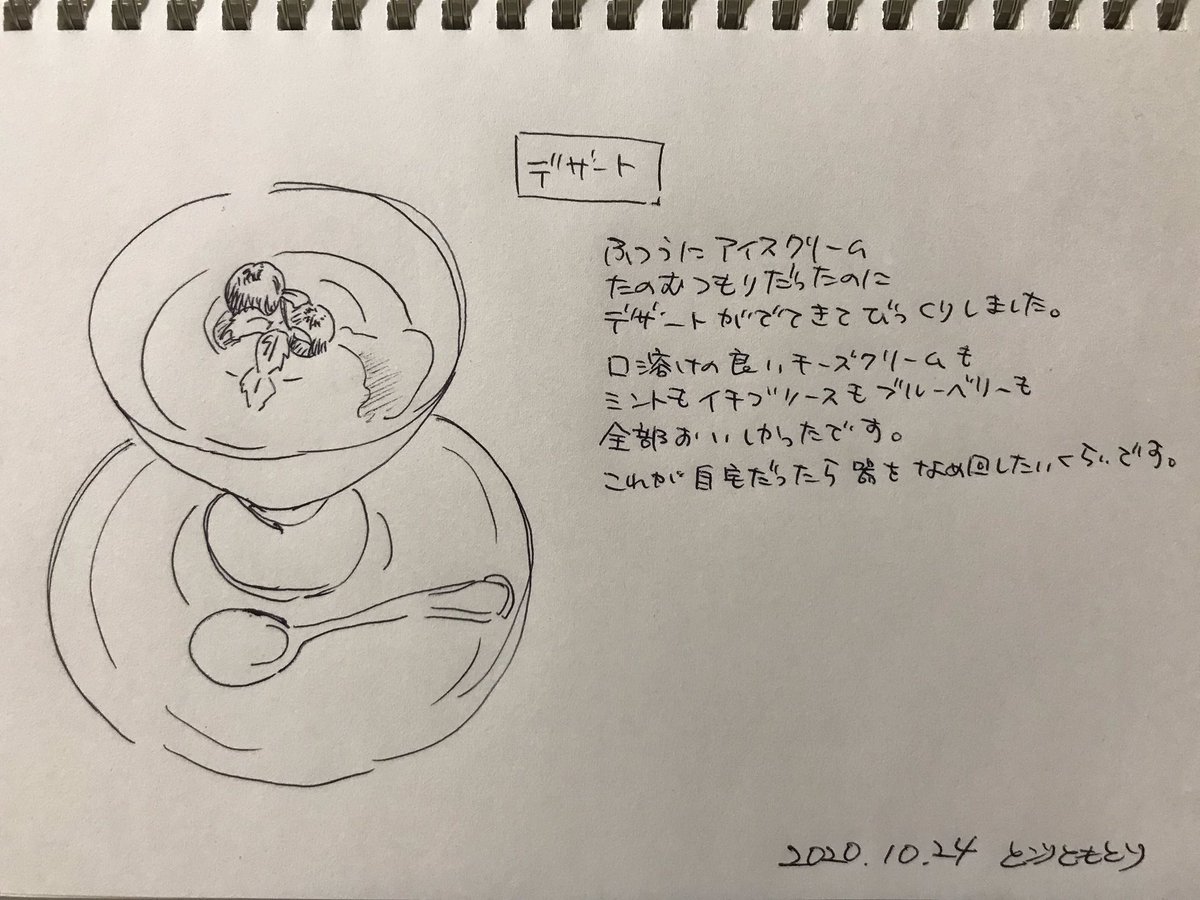 デザート
ふつうにアイスクリーム
たのむつもりだったのに
デザートがでてきてびっくりしました。
口溶けの良いチーズクリームも
ミントもイチゴソースもブルーベリーも
全部おいしかったです。
これが自宅だったら器をなめ回したいくらいです。
2020.10.24